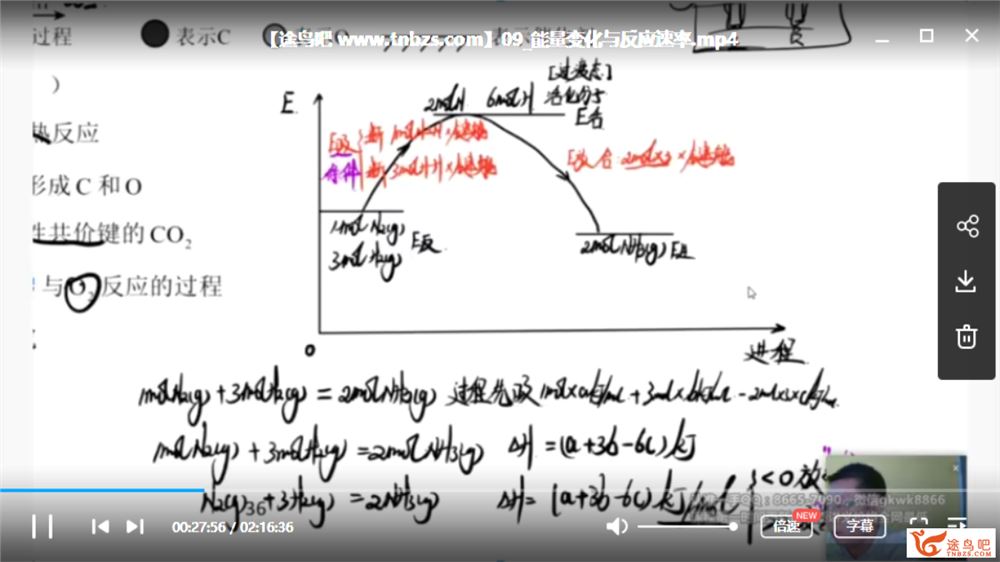 过程
表示C
【途鸟吧 www.tnbzs.com】09_能量变化与反应速率.mp4
)
热反应
形成 C 和 O
性共价键的 CO₂
与O₂反应的过程
E
2molN 6molH
[过渡态]
活化分子
E吸
条件
断 1molN≡N×键能
断 3molH-H×键能
E放 合: 2mol×3×键能
1molN₂(g)
3molH₂(g)
E反
2molNH₃(g)
0
进程
1molN₂(g)+3molH₂(g)=2molNH₃(g) 过程先吸 1mol×akJ/mol+3mol×bkJ/mol-2mol×3×ckJ/mol
1molN₂(g)+3molH₂(g)=2molNH₃(g) ΔH=(a+3b-6c)kJ
N₂(g)+3H₂(g)=2NH₃(g) ΔH=(a+3b-6c)kJ/mol
<0 放
36
00:27:56 / 02:16:36
倍速
NEW
字幕
途鸟吧
www.tnbzs.com